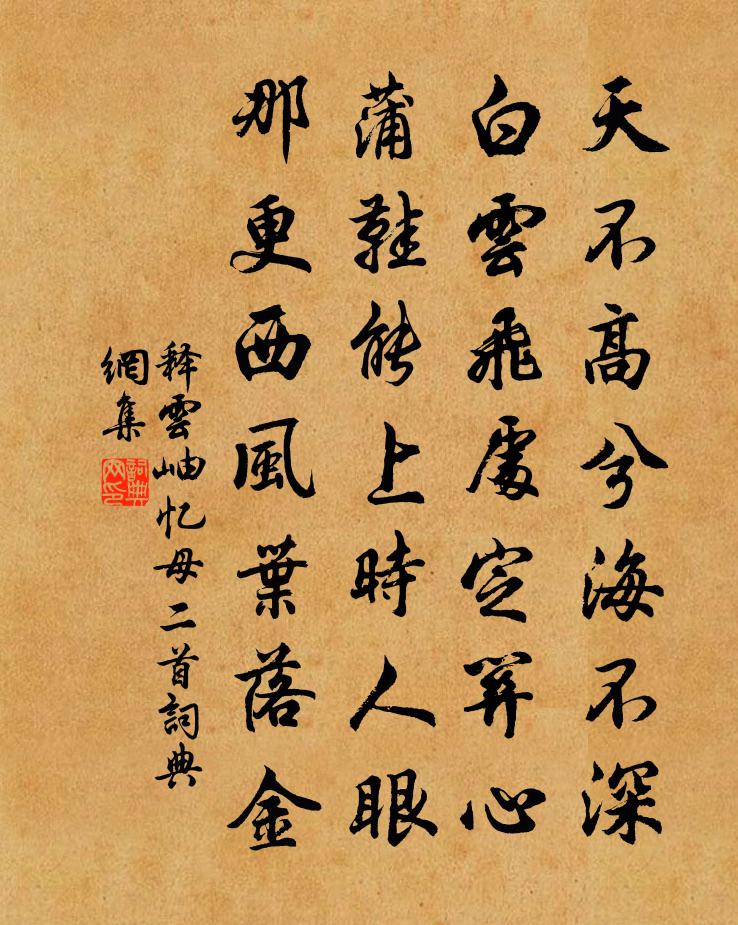 天不高兮海不深
白雲飛處定關心
蒲鞋能上時人眼
那更西風葉落金
释雲岫忆母二首詞典
網集
詞典網印